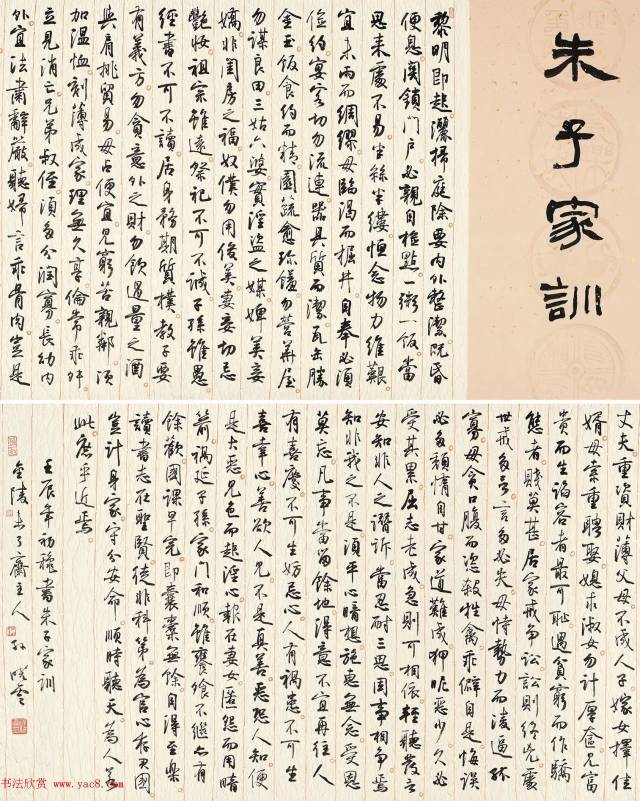 朱子家訓
黎明即起灑掃庭除要内外整潔既昏
便息關鎖門戶必親自檢點一粥一飯當
思來處不易半絲半縷恒念物力維艱
宜未雨而綢繆毋臨渴而掘井自奉必須
儉約宴客切勿流連器具質而潔瓦缶勝
金玉飯食約而精園蔬愈珍饈勿營華屋
勿謀良田三姑六婆實淫盜之媒婢美妾
嬌非閨房之福奴僕勿用俊美妻妾切忌
艷妝祖宗雖遠祭祀不可不誠子孫雖愚
經書不可不讀居身務期質樸教子要
有義方勿貪意外之財勿飲過量之酒
與肩挑貿易毋占便宜見窮苦親鄰須
加溫恤刻薄成家理無久享倫常乖舛
立見消亡兄弟叔侄須多分潤寡長幼内
外宜法肅辭嚴聽婦言乖骨肉豈是
丈夫重資財薄父母不成人子嫁女擇佳
婿毋索重聘娶媳求淑女勿計厚奩見富
貴而生諂容者最可恥遇貧窮而作驕
態者賤莫甚居家戒爭訟訟則終凶處
世戒多言言多必失毋恃勢力而淩逼孤
寡毋貪口腹而恣殺牲禽乖僻自是悔誤
必多頹惰自甘家道難成狎昵惡少久必
受其累屈志老成急則可相依輕聽發言
安知非人之譖訴當忍耐三思因事相爭焉
知非我之不是須平心暗想施惠無念受恩
莫忘凡事當留餘地得意不宜再往人
有喜慶不可生妒忌心人有禍患不可生
喜幸心善欲人見不是真善惡恐人知便
是大惡見色而起淫心報在妻女匿怨而用暗
箭禍延子孫家門和順雖饔飧不繼亦有
餘歡國課早完即囊橐無餘自得至樂
讀書志在聖賢徒非科第為官心存君國
豈計身家守分安命順時聽天為人若
此庶乎近焉
壬辰年初穐書朱子家訓
金陵未了齋主人孫曉雲
书法欣赏 www.yac8.com